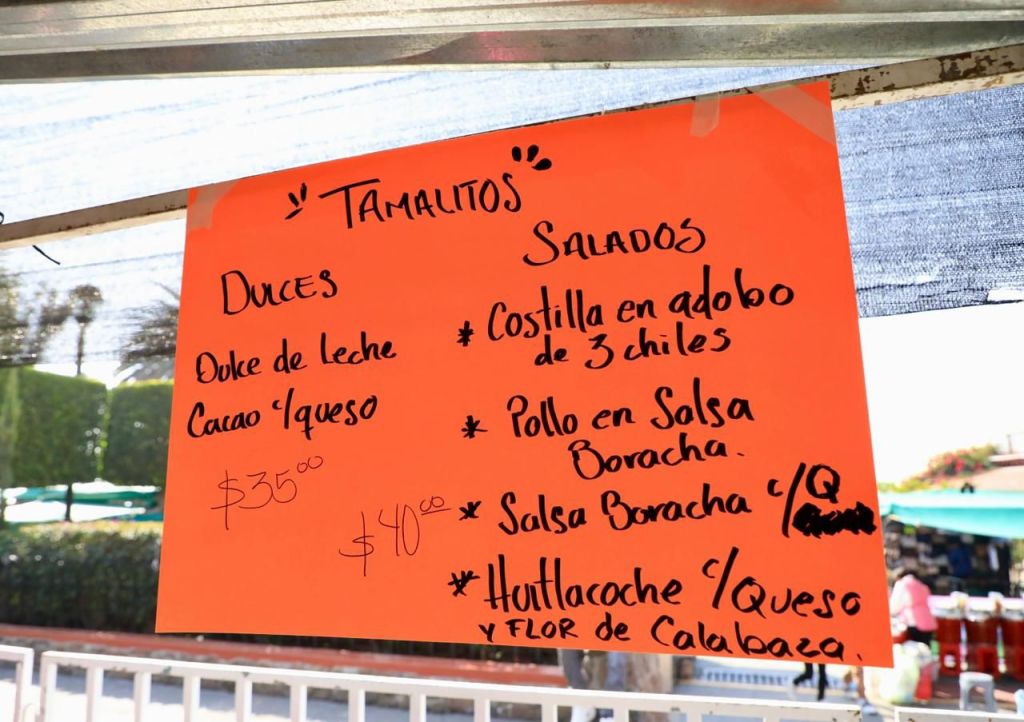 TAMALITOS
DULCES
Dulce de Leche
Cacao c/queso
$35⁰⁰
SALADOS
* Costilla en adobo
de 3 chiles
* Pollo en Salsa
Boracha.
* Salsa Boracha c/Q
* Huitlacoche c/Queso
y FLOR de Calabaza.
$40⁰⁰